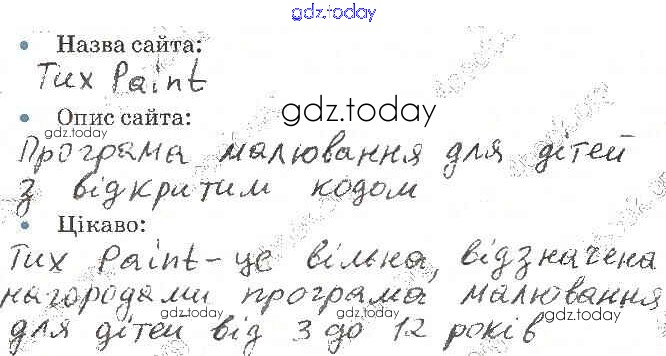 gdz.today
Назва сайта:
Tux Paint
Опис сайта:
gdz.today
gdz.today
Програма малювання для дітей
з відкритим кодом
gdz.today
gdz.today
Цікаво:
Tux Paint – це вільна, відзначена
нагородами програма малювання
для дітей від 3 до 12 років
gdz.today
gdz.today